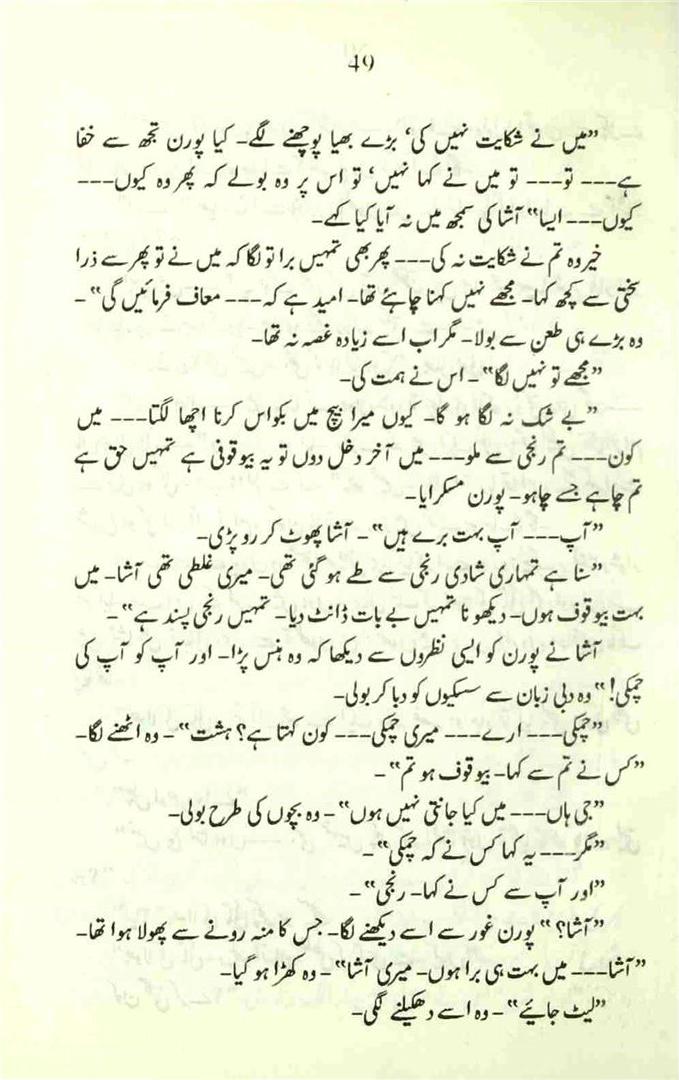 49
”میں نے شکایت نہیں کی‘ بڑے بھیا پوچھنے لگے۔ کیا پورن تجھ سے خفا
ہے۔۔۔ تو۔۔۔ تو میں نے کہا نہیں‘ تو اس پر وہ بولے کہ پھر وہ کیوں۔۔۔
کیوں۔۔۔ ایسا“ آشا کی سمجھ میں نہ آیا کیا کہے۔
خیر وہ تم نے شکایت نہ کی۔۔۔ پھر بھی تمہیں برا تو لگا کہ میں نے تو پھر سے ذرا
سختی سے کچھ کہا۔ مجھے نہیں کہنا چاہئے تھا۔ امید ہے کہ۔۔۔ معاف فرمائیں گی“۔
وہ بڑے ہی طعن سے بولا۔ مگر اب اسے زیادہ غصہ نہ تھا۔
”مجھے تو نہیں لگا“۔ اس نے ہمت کی۔
”بے شک نہ لگا ہو گا۔ کیوں میرا بیچ میں بکواس کرنا اچھا لگتا۔۔۔ میں
کون۔۔۔ تم رنجی سے ملو۔۔۔ میں آخر دخل دوں تو یہ بیوقوفی ہے تمہیں حق ہے
تم چاہے جسے چاہو۔ پورن مسکرایا۔
”آپ۔۔۔ آپ بہت برے ہیں“۔ آشا پھوٹ کر رو پڑی۔
”سنا ہے تمہاری شادی رنجی سے طے ہو گئی تھی۔ میری غلطی تھی آشا۔ میں
بہت بیوقوف ہوں۔ دیکھو نا تمہیں بے بات ڈانٹ دیا۔ تمہیں رنجی پسند ہے“۔
آشا نے پورن کو ایسی نظروں سے دیکھا کہ وہ ہنس پڑا۔ اور آپ کو آپ کی
چمکی!“ وہ دبی زبان سے سسکیوں کو دبا کر بولی۔
”چمکی۔۔۔ ارے۔۔۔ میری چمکی۔۔۔ کون کہتا ہے؟ ہشت“۔ وہ اٹھنے لگا۔
”کس نے تم سے کہا۔ بیوقوف ہو تم“۔
”جی ہاں۔۔۔ میں کیا جانتی نہیں ہوں“۔ وہ بچوں کی طرح بولی۔
”مگر۔۔۔ یہ کہا کس نے کہ چمکی“۔
”اور آپ سے کس نے کہا۔ رنجی“۔
”آشا؟“ پورن غور سے اسے دیکھنے لگا۔ جس کا منہ رونے سے پھولا ہوا تھا۔
”آشا۔۔۔ میں بہت ہی برا ہوں۔ میری آشا“۔ وہ کھڑا ہو گیا۔
”لیٹ جائیے“۔ وہ اسے دھکیلنے لگی۔